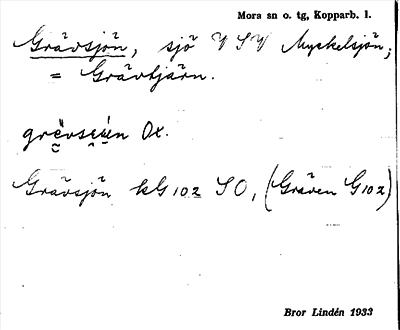 Mora sn o. tg, Kopparb. l.
Grävsjön, sjö V SV Myckelsjön;
= Grävtjärn.
Ox.
Grävsjön kG102 SO, (Gräven G102)
Bror Lindén 1933